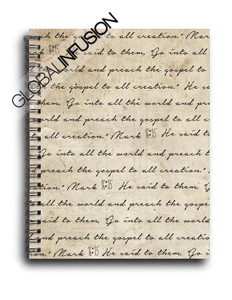 GLOBALINFUSION
gh the gospel to all creation." Mark
15 He said to them, "Go into all
world and preach the gospel to
to all creation." Mark 16:15 He said
them, Go into all the world and preach
gospel to all creation." Mark 16:15 He
to them, Go into all the world and
preach the gospel to all creation." Mark
all creation." Mark 16:15 He said to
Go into all the world and preach the
to all creation." Mark 16:15 He said
to them, Go into all the world
and preach the gospel to all creation." Mark
16:15 He said to them, Go into